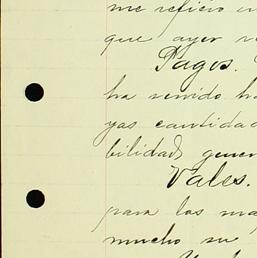 me refiero en
que ayer
Pagos.
ha venido ha
yas cantidad
bilidad gener
Vales.
para las ma
mucho su